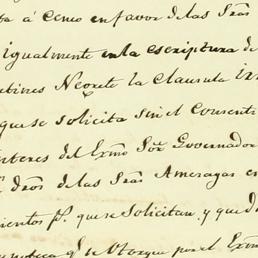 ba á Censo en favor de las Sras
igualmente en la escriptura de
la Clausula
que se solicita sin el Consenti
interes del Exmo Sor Governador
dros de las Sras Amezagas en
ientos ps. que se Solicitan, y que d
qe. se Otorque por el Exmo